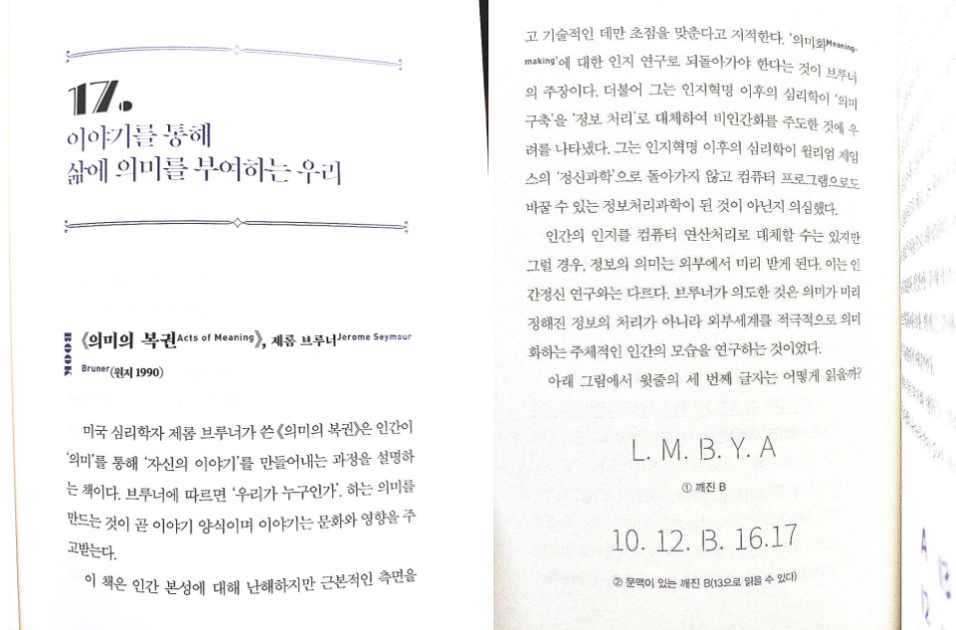 17.
이야기를 통해
삶에 의미를 부여하는 우리
BOOK
《의미의 복권Acts of Meaning》, 제롬 브루너Jerome Seymour
Bruner(원저 1990)
미국 심리학자 제롬 브루너가 쓴 《의미의 복권》은 인간이
‘의미’를 통해 ‘자신의 이야기’를 만들어내는 과정을 설명하
는 책이다. 브루너에 따르면 ‘우리가 누구인가’. 하는 의미를
만드는 것이 곧 이야기 양식이며 이야기는 문화와 영향을 주
고받는다.
이 책은 인간 본성에 대해 난해하지만 근본적인 측면을
고 기술적인 데만 초점을 맞춘다고 지적한다. ‘의미화Meaning-
making’에 대한 인지 연구로 되돌아가야 한다는 것이 브루너
의 주장이다. 더불어 그는 인지혁명 이후의 심리학이 ‘의미
구축’을 ‘정보 처리’로 대체하여 비인간화를 주도한 것에 우
려를 나타냈다. 그는 인지혁명 이후의 심리학이 윌리엄 제임
스의 ‘정신과학’으로 돌아가지 않고 컴퓨터 프로그램으로도
바꿀 수 있는 정보처리과학이 된 것이 아닌지 의심했다.
인간의 인지를 컴퓨터 연산처리로 대체할 수는 있지만
그럴 경우, 정보의 의미는 외부에서 미리 받게 된다. 이는 인
간정신 연구와는 다르다. 브루너가 의도한 것은 의미가 미리
정해진 정보의 처리가 아니라 외부세계를 적극적으로 의미
화하는 주체적인 인간의 모습을 연구하는 것이었다.
아래 그림에서 윗줄의 세 번째 글자는 어떻게 읽을까?
L. M. B. Y. A
① 깨진 B
10. 12. B. 16.17
② 문맥이 있는 깨진 B(13으로 읽을 수 있다)